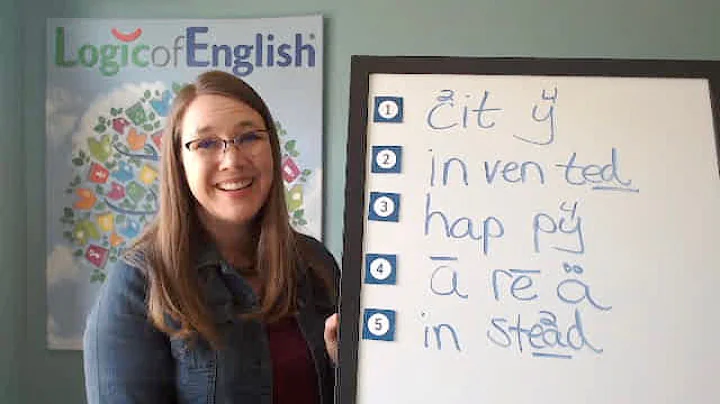 Logic of English®
1 c²it y⁴
2 in ven ted
3 hap py⁴
4 ā rē ä
5 in stea²d